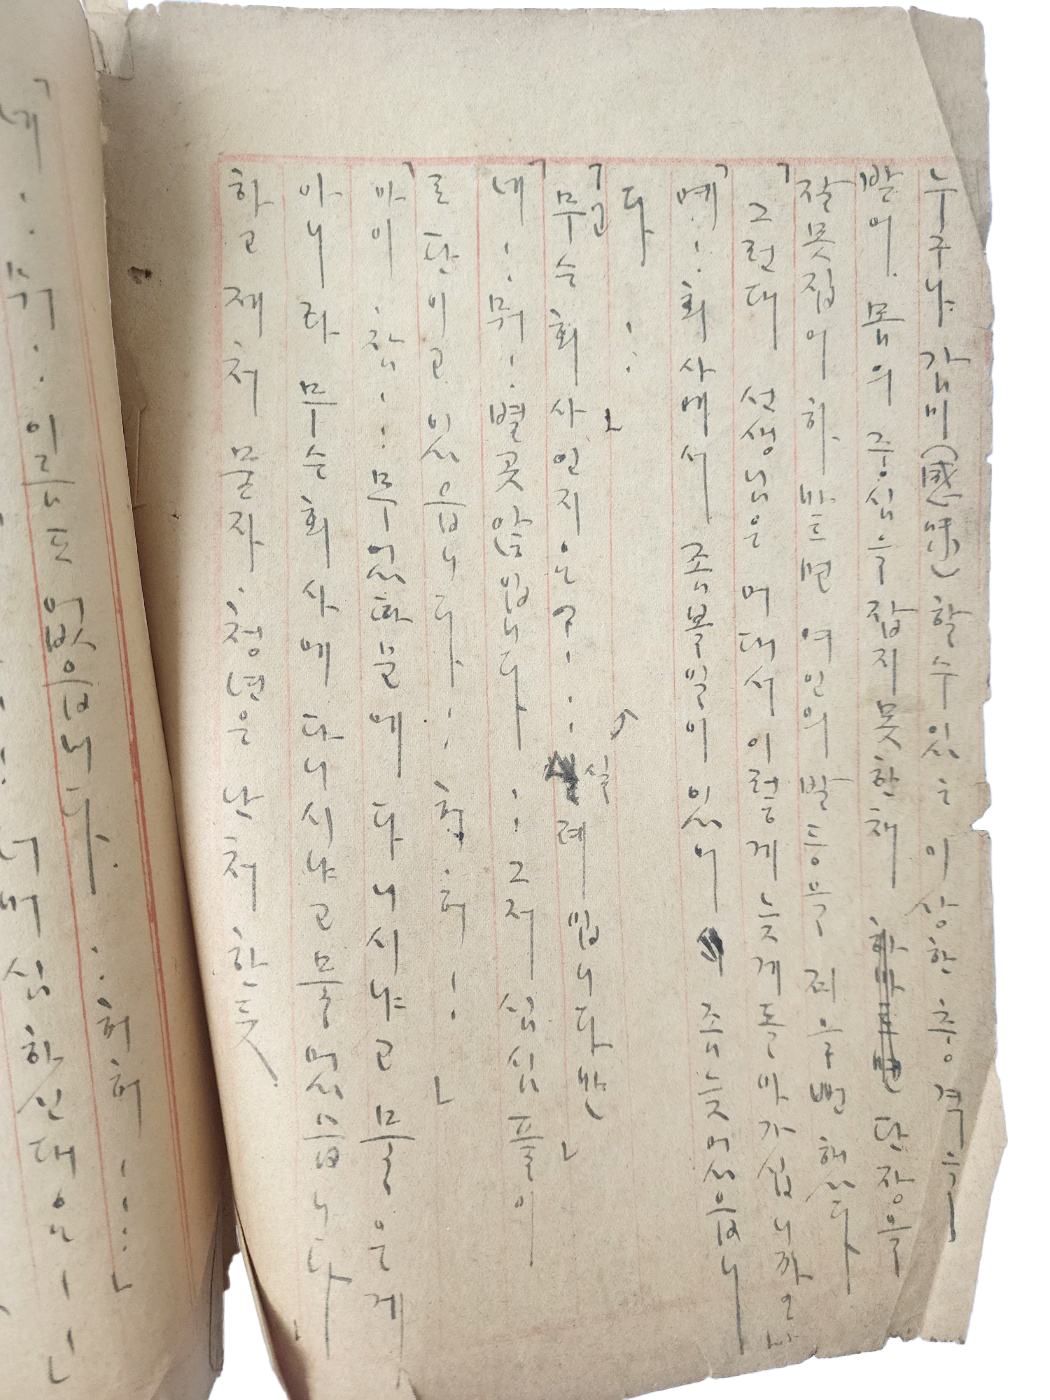 누구나 감미(感味)할수있는 이상한 충격을
받어. 몸의 중심을 잡지못한채 단장을
잘못집어 하바트면 여인의 발등을 찌을뻔 했다
「그런대 선생님은 머대서 이렇게 늦게돌아가십니까요」
「예··회사에서 좀볼일이 있어 좀늦었읍니
다··」
「무순회사인지은?··실례입니다만」
「네··뭐·별곳안입니다··그저 심심풀이
로단이고 있읍니다··허·허!」
「아이·참··무었하는데 다니시냐고 물은게
아니라 무순회사에 다니시냐고 물었읍니다」
하고 재처 물자·청년은 난처한듯
「네··뭐··이름도없읍니다.··허허···」